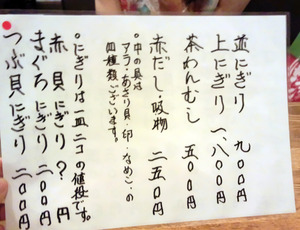 並にぎり 九〇〇円
上にぎり 一、八〇〇円
茶わんむし 五〇〇円
赤だし・吸物 二五〇円
○中の具は
アラ・あさり貝・卵・なめこ・の
四種類ございます。
○にぎりは一皿二コの値段です。
赤貝にぎり ? 円
まぐろにぎり 二〇〇円
つぶ貝にぎり 二〇〇円